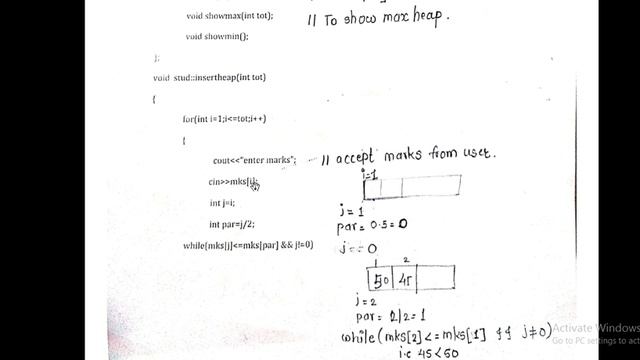 void showmax(int tot);
// To show max heap.
void showmin();
};
void stud::insertheap(int tot)
{
for(int i=1;i<=tot;i++)
{
cout<<"enter marks";
// accept marks from user.
cin>>mks[i];
i=1
int j=i;
j=1
int par=j/2;
par = 0.5 = 0
while(mks[j]<=mks[par] && j!=0)
j == 0
1 2
50 45
j = 2
par = 2/2 = 1
while(mks[2] <= mks[1] && j≠0)
i.e 45<50
Activate Windows
Go to PC settings to act